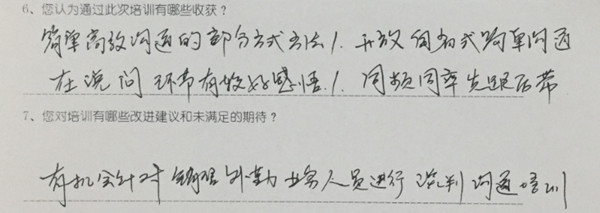 6、您认为通过此次培训有哪些收获？
简单高效沟通的部分方式方法1. 开放 何 式 简单沟通
在说问 环节有较好感悟.1. 同频同率先跟后带
7、您对培训有哪些改进建议和未满足的期待？
有机会针对 销售外勤业务人员进行 谈判沟通培训